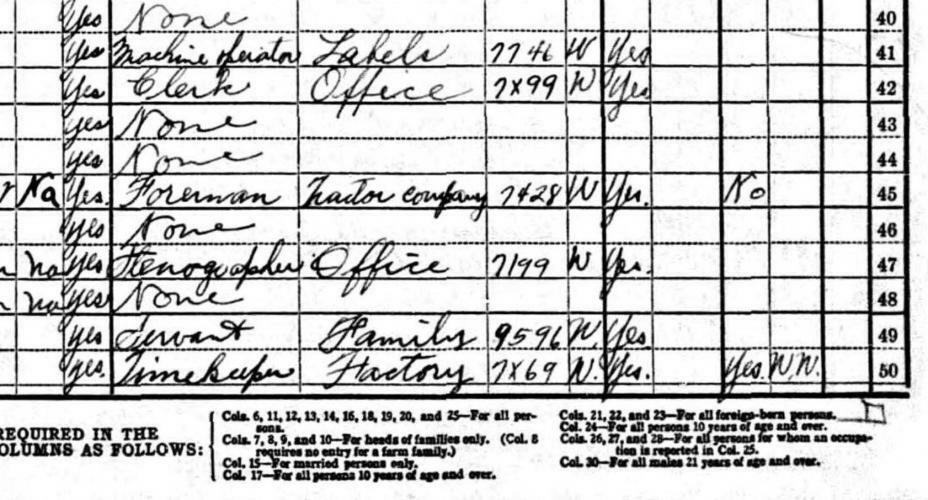 Yes None 40
Yes Machine operator Labels 7746 W Yes 41
Yes Clerk Office 7X99 W Yes 42
yes None 43
yes None 44
Na Yes. Foreman Tractor company 7428 W Yes. No 45
yes None 46
na yes Stenographer Office 7199 W Yes. 47
na yes None 48
yes Servant Family 9596 W. Yes 49
yes. Timekeeper Factory 7X69 W. Yes. Yes. W.W. 50
REQUIRED IN THE
COLUMNS AS FOLLOWS:
Cols. 6, 11, 12, 13, 14, 16, 18, 19, 20, and 25—For all per-
sons.
Cols. 7, 8, 9, and 10—For heads of families only. (Col. 8
requires no entry for a farm family.)
Col. 15—For married persons only.
Col. 17—For all persons 10 years of age and over.
Cols. 21, 22, and 23—For all foreign-born persons.
Col. 24—For all persons 10 years of age and over.
Cols. 26, 27, and 28—For all persons for whom an occupa-
tion is reported in Col. 25.
Col. 30—For all males 21 years of age and over.